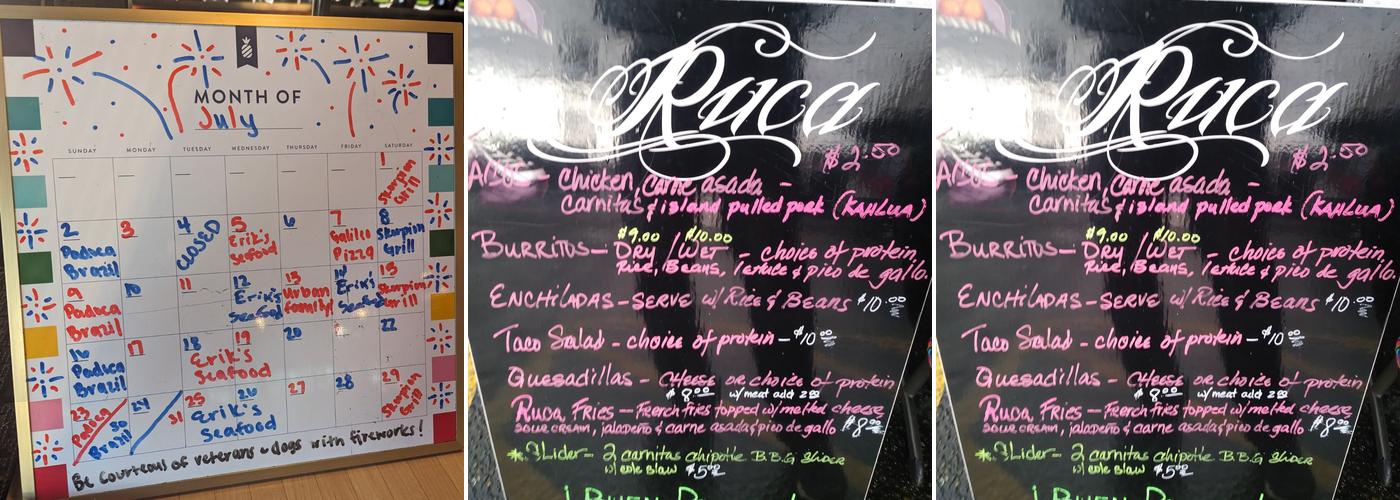 MONTH OF
July
SUNDAY MONDAY TUESDAY WEDNESDAY THURSDAY FRIDAY SATURDAY
1
Skorpion Grill
2 3 4 5 6 7 8
Paduca Brazil
CLOSED
Erik's Seafood
Galileo Pizza
Skorpion Grill
9 10 11 12 13 14 15
Paduca Brazil
Erik's Seafood
Urban family
Erik's Seafood
Skorpion Grill
16 17 18 19 20 22
Paduca Brazil
Erik's Seafood
23 30 24 31 25 26 27 28 29
Brazil
Erik's Seafood
Skorpion Grill
Be courteous of veterans & dogs with fireworks!
Ruca
$2.50
Chicken, carne asada -
carnitas & island pulled pork (KAHLUA)
$9.00 $10.00
BURRITOS - DRY / WET - choice of protein,
Rice, Beans, lettuce & pico de gallo.
ENCHILADAS - SERVE w/ Rice & Beans $10.00
Taco Salad - choice of protein - $10.00
Quesadillas - CHEESE or choice of protein
$8.00 w/meat add
Ruca Fries - French fries topped w/melted cheese
sour cream, jalapeño & carne asada & pico de gallo $8.00
*Slider - 2 carnitas chipotle B.B.Q Slider
w/ cole slaw $5.00
Ruca
$2.50
Chicken, carne asada -
carnitas & island pulled pork (KAHLUA)
$9.00 $10.00
BURRITOS - DRY / WET - choice of protein,
Rice, Beans, lettuce & pico de gallo.
ENCHILADAS - SERVE w/ Rice & Beans $10.00
Taco Salad - choice of protein - $10.00
Quesadillas - CHEESE or choice of protein
$8.00 w/meat add
Ruca Fries - French fries topped w/melted cheese
sour cream, jalapeño & carne asada & pico de gallo $8.00
*Slider - 2 carnitas chipotle B.B.Q Slider
w/ cole slaw $5.00